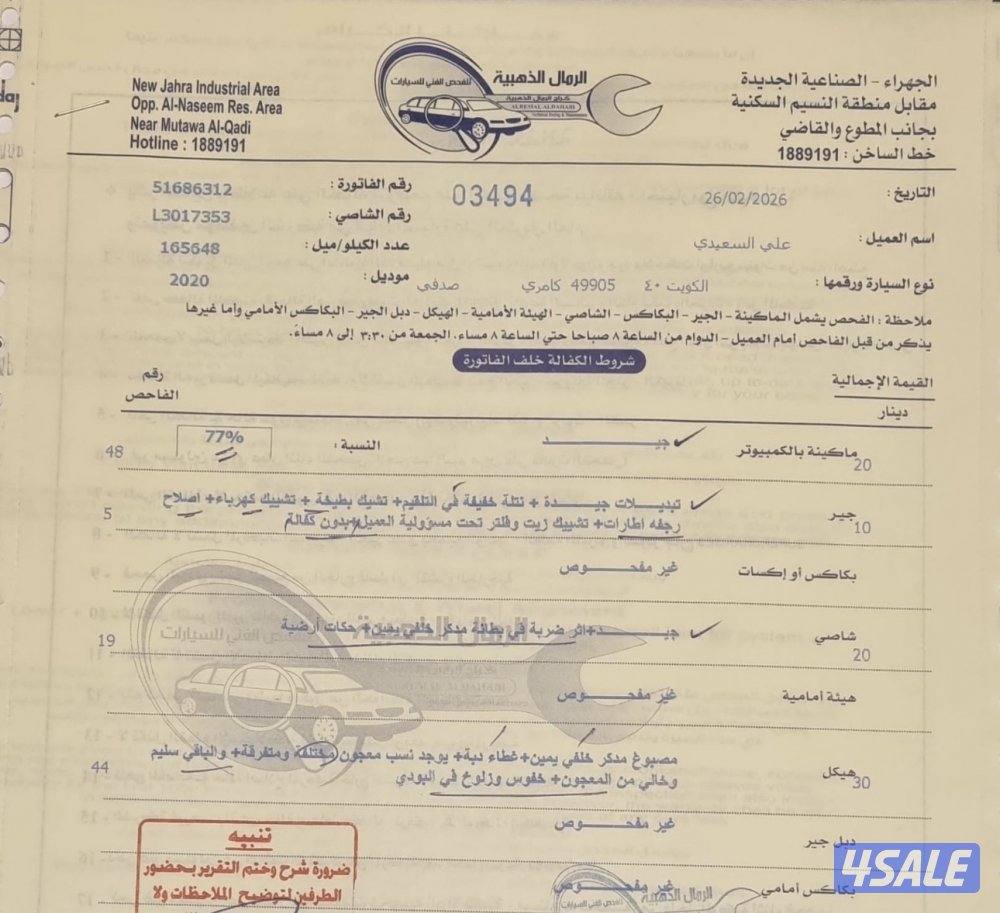 الرمال الذهبية
للفحص الفني للسيارات
كراج الرمال الذهبية
ALREMAL ALDAHABI
الجهراء - الصناعية الجديدة
مقابل منطقة النسيم السكنية
بجانب المطوع والقاضي
خط الساخن : 1889191
New Jahra Industrial Area
Opp. Al-Naseem Res. Area
Near Mutawa Al-Qadi
Hotline : 1889191
التاريخ : 26/02/2026
03494
رقم الفاتورة : 51686312
رقم الشاصي : L3017353
اسم العميل : علي السعيدي
عدد الكيلو/ميل : 165648
نوع السيارة ورقمها : الكويت ٤٠ 49905 كامري صدفي
موديل : 2020
ملاحظة : الفحص يشمل الماكينة - الجير - البكاكس - الشاصي - الهيئة الأمامية - الهيكل - دبل الجير - البكاكس الأمامي وأما غيرها
يذكر من قبل الفاحص أمام العميل - الدوام من الساعة ٨ صباحا حتى الساعة ٨ مساء. الجمعة من ٣:٣٠ إلى ٨ مساءً.
شروط الكفالة خلف الفاتورة
القيمة الإجمالية
دينار
رقم
الفاحص
ماكينة بالكمبيوتر 20 جيـــد النسبة : 77% 48
جير 10 تبديـــلات جيـــدة + نتلة خفيفة في التلقيم+ تشيك بطيخة + تشييك كهرباء+ أصلاح
رجفه اطارات+ تشييك زيت وفلتر تحت مسؤولية العميل/بدون كفالة 5
بكاكس أو إكسات غير مفحـــوص
شاصي 20 جيـــد+اثر ضربة في بطانة مدكر خلفي يمين+ حكات أرضية 19
هيئة أمامية غير مفحـــوص
هيكل 30 مصبوغ مدكر خلفي يمين+ غطاء دبة+ يوجد نسب معجون مختلفة ومتفرقة+ والباقي سليم
وخالي من المعجون+ خفوس وزلوخ في البودي 44
دبل جير غير مفحـــوص
بكاكس أمامي غير مفحـــوص
تنبيه
ضرورة شرح وختم التقرير بحضور
الطرفين لتوضيح الملاحظات ولا
الرمال الذهبية
4SALE